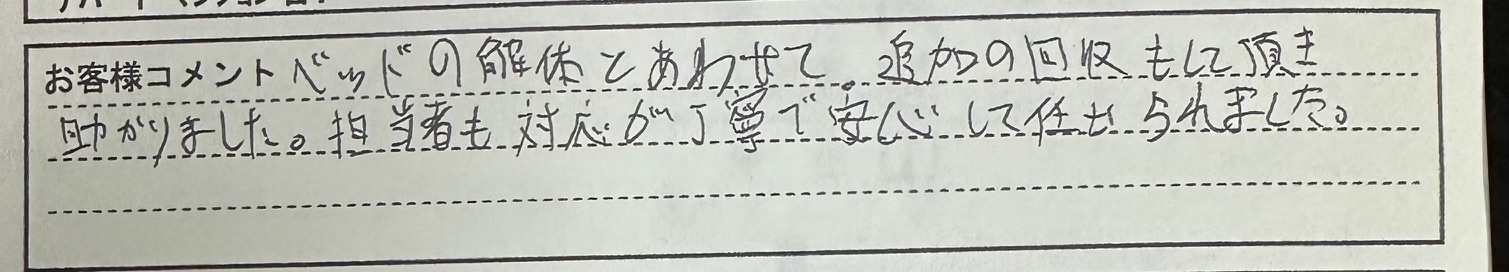 お客様コメント ベッドの解体とあわせて。追加の回収もして頂き
助かりました。担当者も対応が丁寧で安心して任せられました。